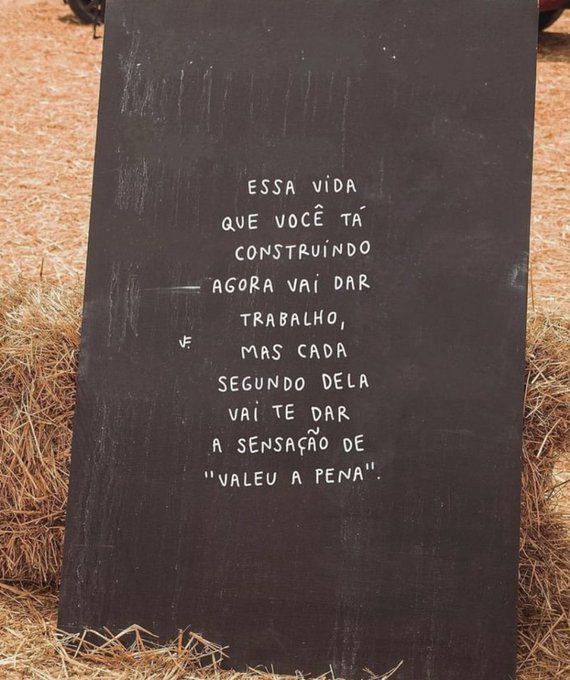 ESSA VIDA
QUE VOCÊ TÁ
CONSTRUINDO
AGORA VAI DAR
TRABALHO,
MAS CADA
SEGUNDO DELA
VAI TE DAR
A SENSAÇÃO DE
"VALEU A PENA".